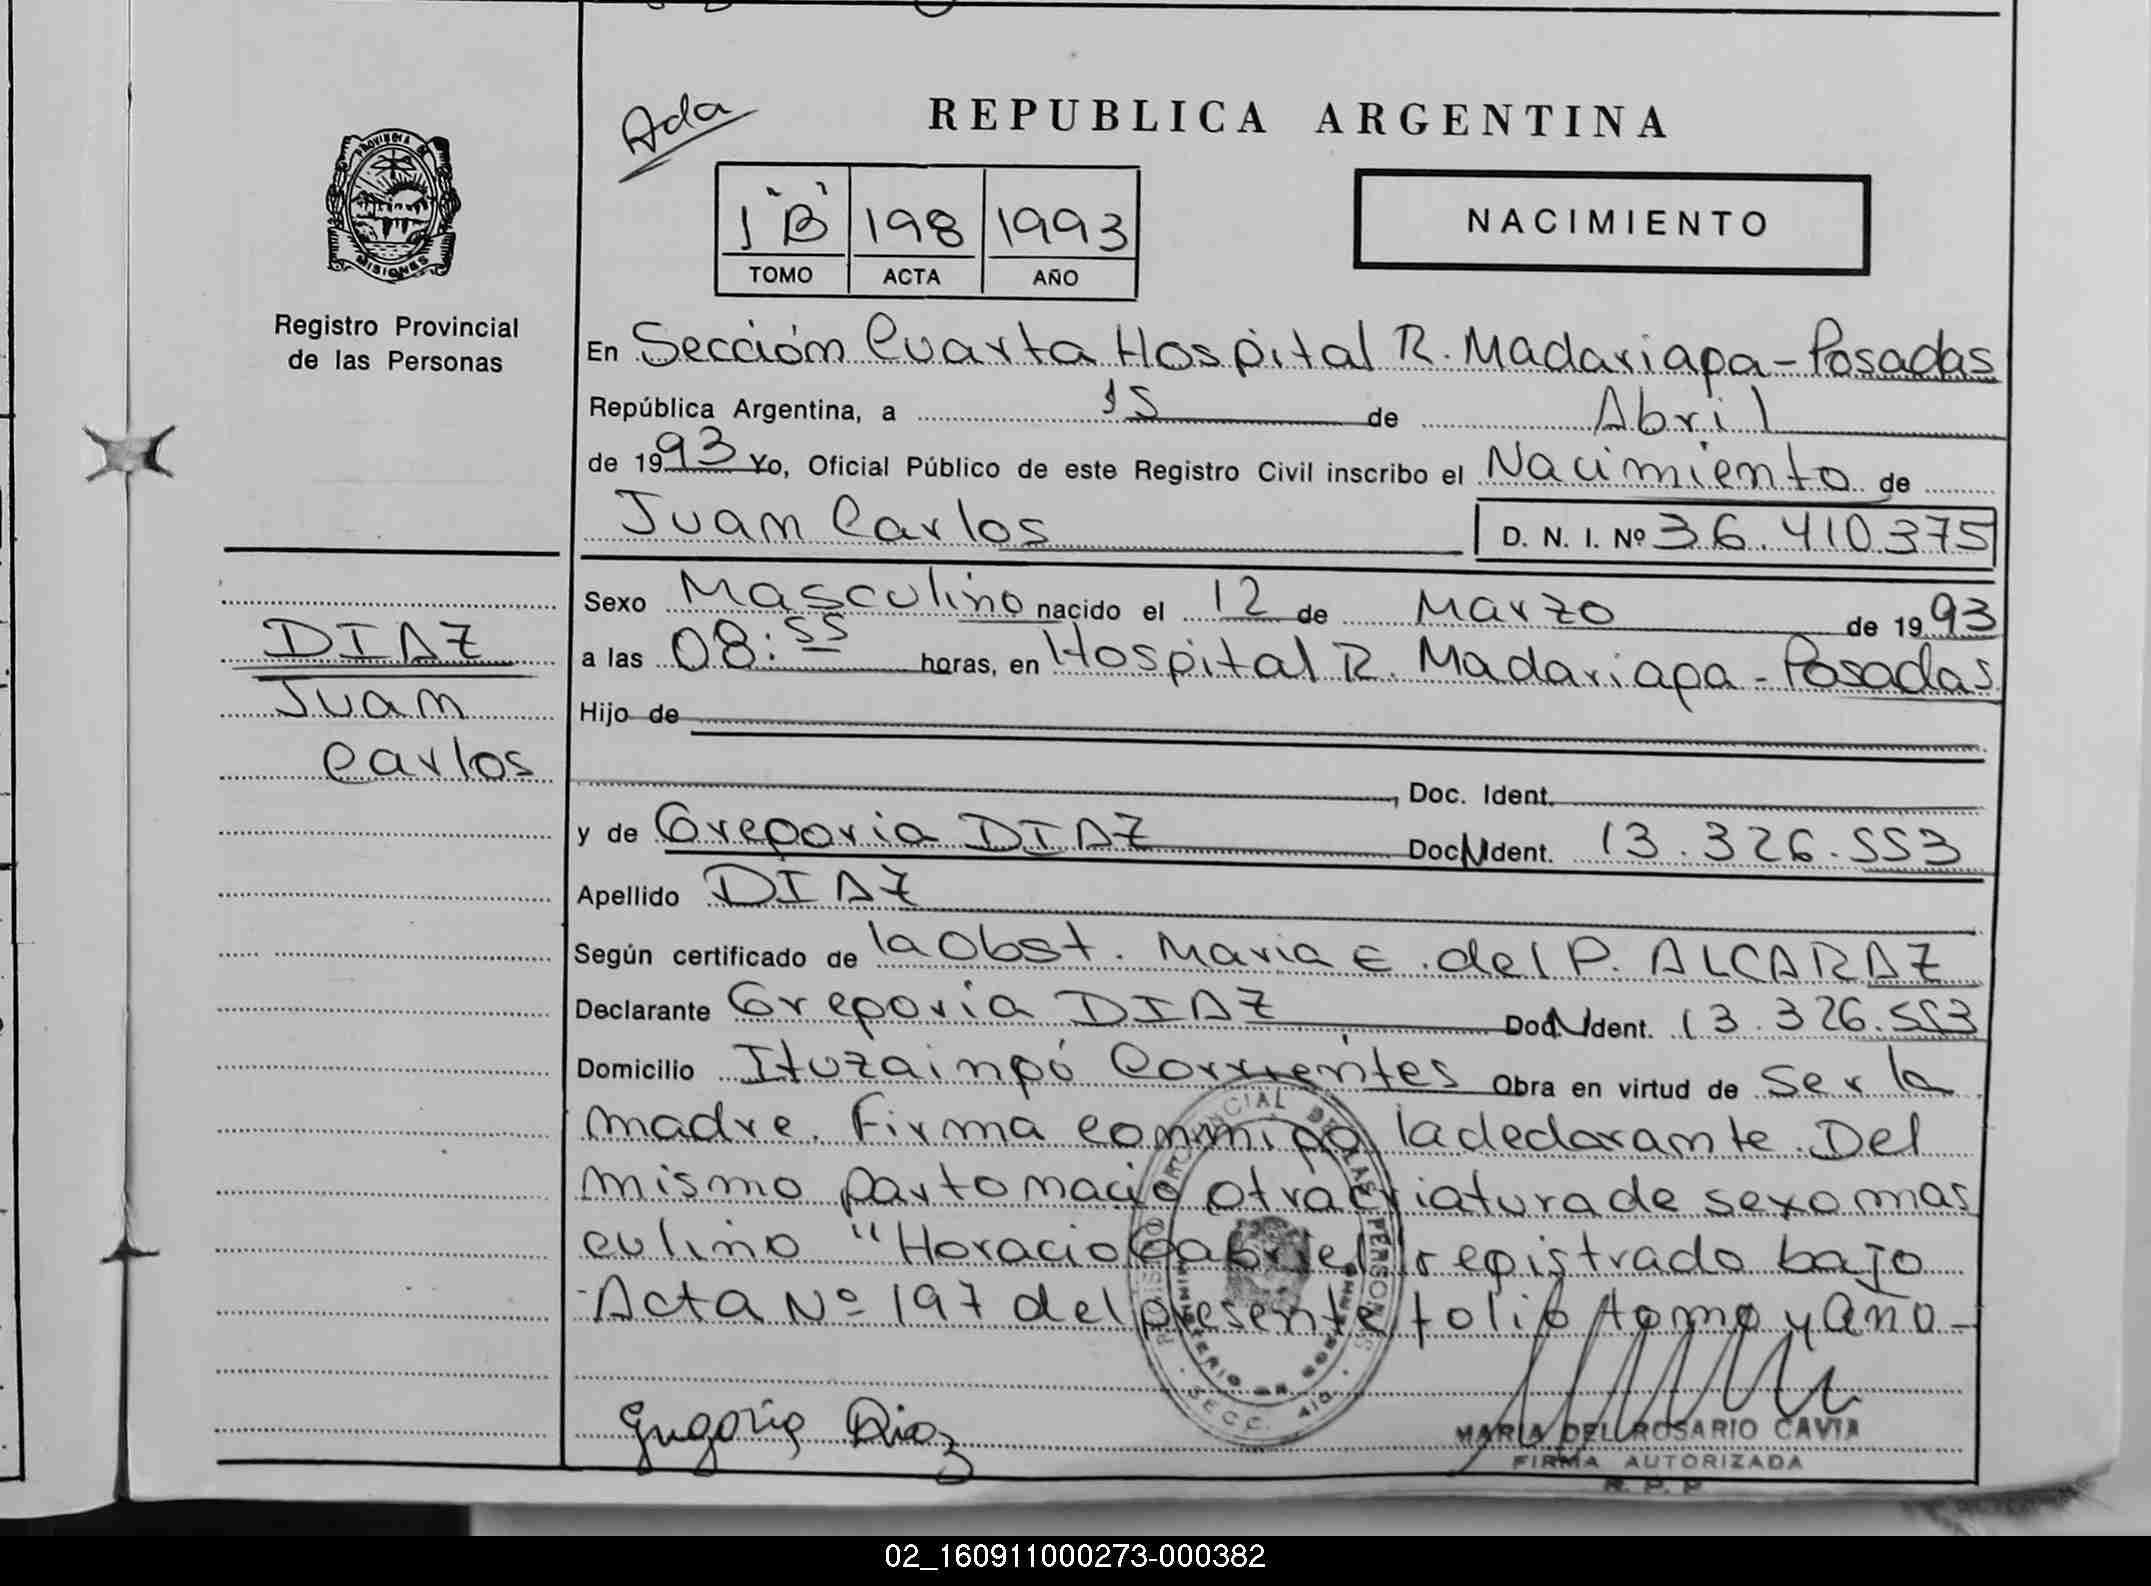 Ada
REPUBLICA ARGENTINA
PROVINCIA DE
MISIONES
Registro Provincial
de las Personas
1 "B" 198 1993
TOMO ACTA AÑO
NACIMIENTO
En Sección Cuarta Hospital R. Madariaga - Posadas
República Argentina, a 15 de Abril
de 1993 Yo, Oficial Público de este Registro Civil inscribo el Nacimiento de
Juan Carlos D. N. I. Nº 36.410.375
Sexo Masculino nacido el 12 de Marzo de 1993
a las 08:55 horas, en Hospital R. Madariaga - Posadas
Hijo de
, Doc. Ident.
y de Gregoria DIAZ Doc N Ident. 13.326.553
Apellido DIAZ
Según certificado de la Obst. Maria E. del P. ALCARAZ
Declarante Gregoria DIAZ Doc N Ident. 13.326.553
Domicilio Ituzaingó Corrientes Obra en virtud de Ser la
madre. Firma conmigo la declarante. Del
mismo parto nació otra criatura de sexo mas
culino "Horacio Gabriel" registrado bajo
Acta Nº 197 del presente folio tomo y año -
DIAZ
Juan
Carlos
Gregoria Diaz
REGISTRO PROVINCIAL DE LAS PERSONAS
MINISTERIO DE GOBIERNO
SECC. 4ta.
MARIA DEL ROSARIO CAVIA
FIRMA AUTORIZADA
R. P. P.
02_160911000273-000382